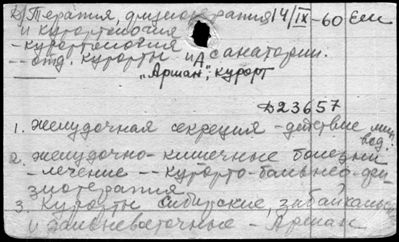 2) Терапия, физиотерапия 14/IX-60 Ем
и курортология
- курортология
-- отд. курорты и санатории.
„Аршан", курорт
Д23657
1. Желудочная секреция - действие мин. вод.
2. Желудочно-кишечные болезни
- лечение -- курорто-бальнео-физиотерапия.
3. Курорты Сибирские, забайкальск.
и дальневосточные - Аршан